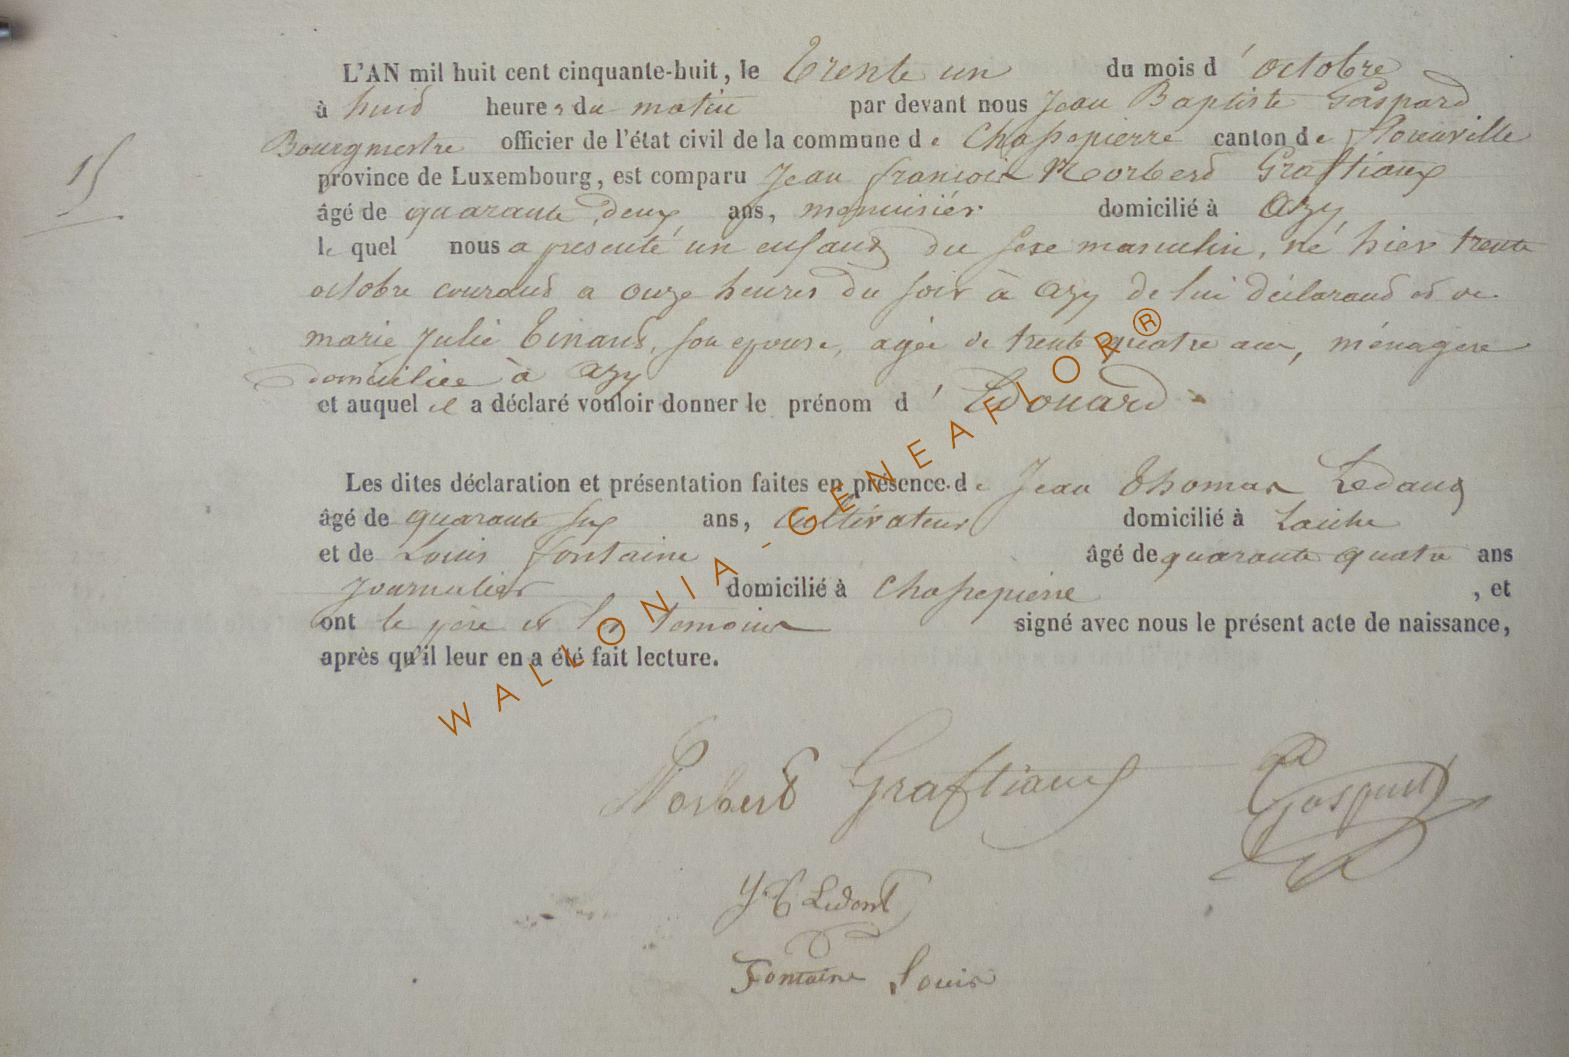 L'AN mil huit cent cinquante-huit, le Trente un du mois d'octobre
à huit heures du matin par devant nous Jean Baptiste Gaspard
Bourgmestre officier de l'état civil de la commune de Chassepierre canton de Florenville
15
province de Luxembourg, est comparu Jean françois Norbert Graftiaux
âgé de quarante deux ans, menuisiér domicilié à Azy
le quel nous a présenté un enfant du sexe masculin, né hier trente
octobre courant a onze heures du soir à Azy de lui déclarant et de
marie Julie Tinant, son epouse, agée de trente quatre ans, ménagere
domiciliée à Azy
et auquel il a déclaré vouloir donner le prénom d'Edouard
Les dites déclaration et présentation faites en présence de Jean Thomas Ledant
âgé de quarante six ans, Cultivateur domicilié à Laiche
et de Louis fontaine âgé de quarante quatre ans
Journalier domicilié à Chassepierre, et
ont le père et les temoins signé avec nous le présent acte de naissance,
après qu'il leur en a été fait lecture.
WALLONIA-GENEAFLOR®
Norbert Graftiaux
J T Ledant
Fontaine Louis